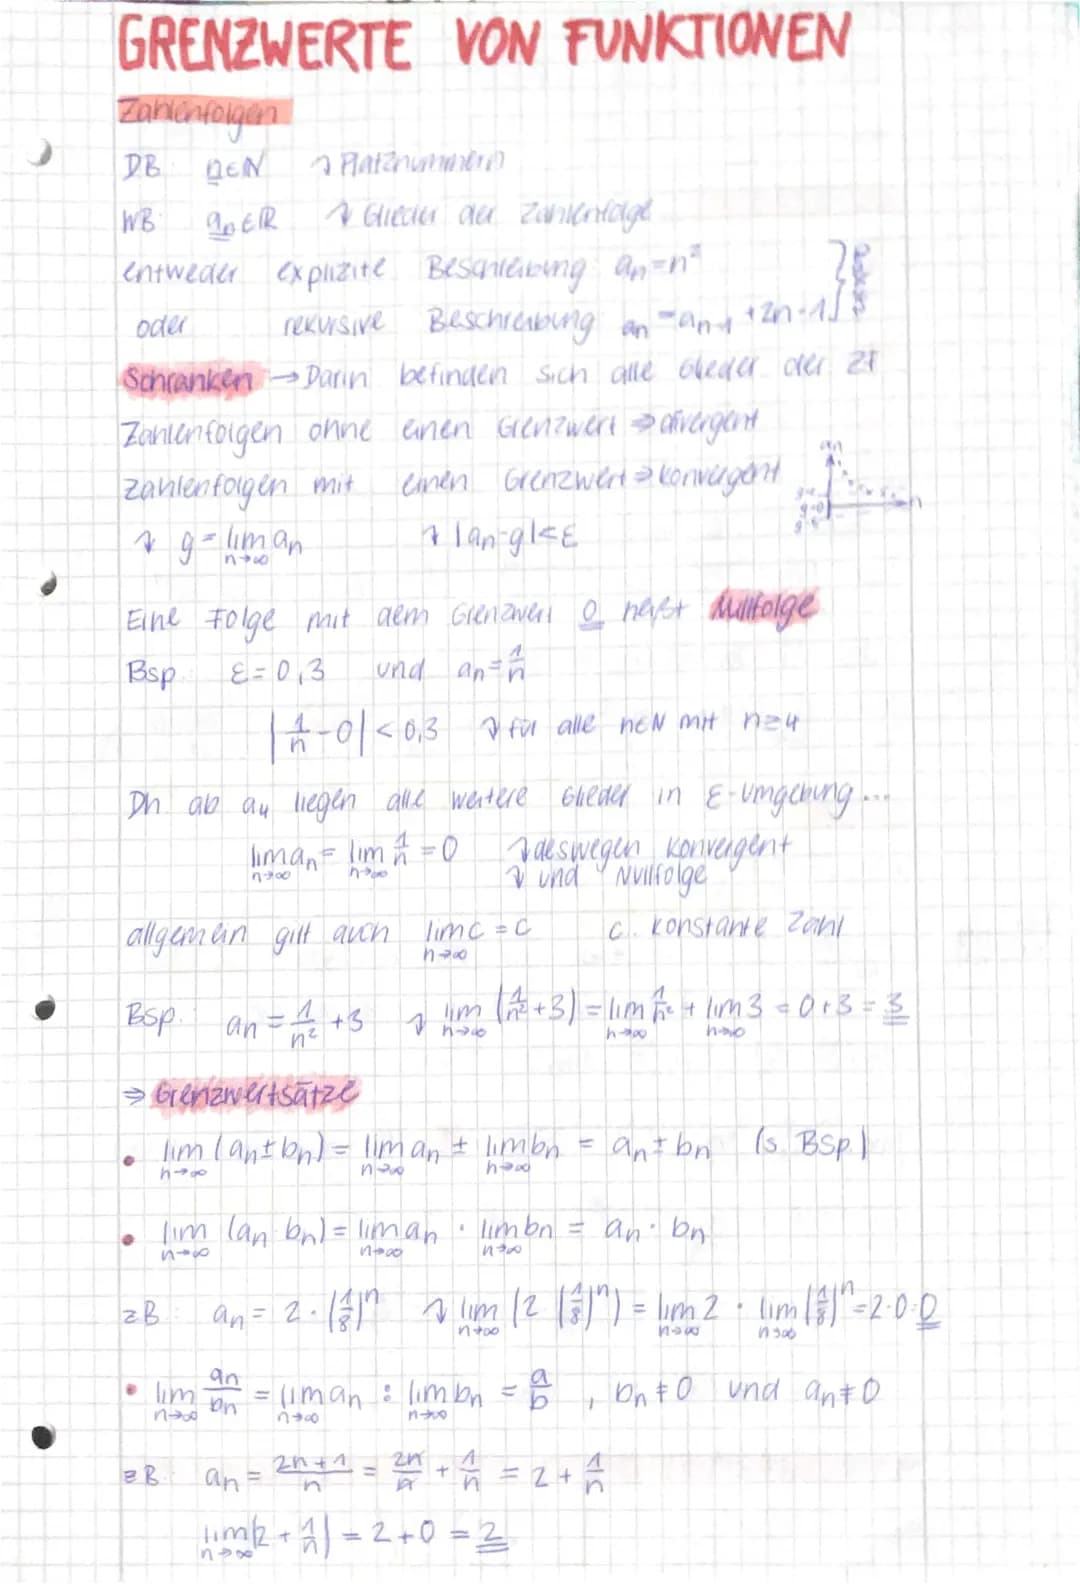 GRENZWERTE VON FUNKTIONEN
Zahlenfolgen
DB: n∈N ↴ Platznummern
WB: aₙ∈R ↴ Glieder der Zahlenfolge
entweder explizite Beschreibung aₙ=n²
oder rekursive Beschreibung aₙ=aₙ₋₁+2n-1
Schranken → Darin befinden sich alle Glieder der ZF
Zahlenfolgen ohne einen Grenzwert ⇒ divergent
Zahlenfolgen mit einen Grenzwert ⇒ konvergent
aₙ
n
↴ g = lim aₙ ↴ |aₙ-g|<ε
n→∞
Eine Folge mit dem Grenzwert 0 heißt Nullfolge
Bsp. ε=0,3 und aₙ=1/n
|1/n - 0| < 0,3 ↴ für alle n∈N mit n≥4
Dh. ab a₄ liegen alle weitere Glieder in ε-Umgebung...
lim aₙ = lim 1/n = 0 ↴ deswegen konvergent
n→∞ n→∞ ↴ und Nullfolge
allgemein gilt auch lim c = c c. konstante Zahl
n→∞
Bsp.: aₙ = 1/n² + 3 ↴ lim (1/n² + 3) = lim 1/n² + lim 3 = 0+3 = 3
n→∞ n→∞ n→∞
⇒ Grenzwertsätze
• lim (aₙ ± bₙ) = lim aₙ ± lim bₙ = aₙ ± bₙ (s. Bsp.)
n→∞ n→∞ n→∞
• lim (aₙ · bₙ) = lim aₙ · lim bₙ = aₙ · bₙ
n→∞ n→∞ n→∞
zB: aₙ = 2 · (1/8)ⁿ ↴ lim (2 · (1/8)ⁿ) = lim 2 · lim (1/8)ⁿ = 2·0·0
n→∞ n→∞ n→∞
• lim aₙ/bₙ = lim aₙ : lim bₙ = a/b , bₙ≠0 und aₙ≠0
n→∞ n→∞ n→∞
zB: aₙ = (2n+1)/n = 2n/n + 1/n = 2 + 1/n
lim (2 + 1/n) = 2+0 = 2
n→∞